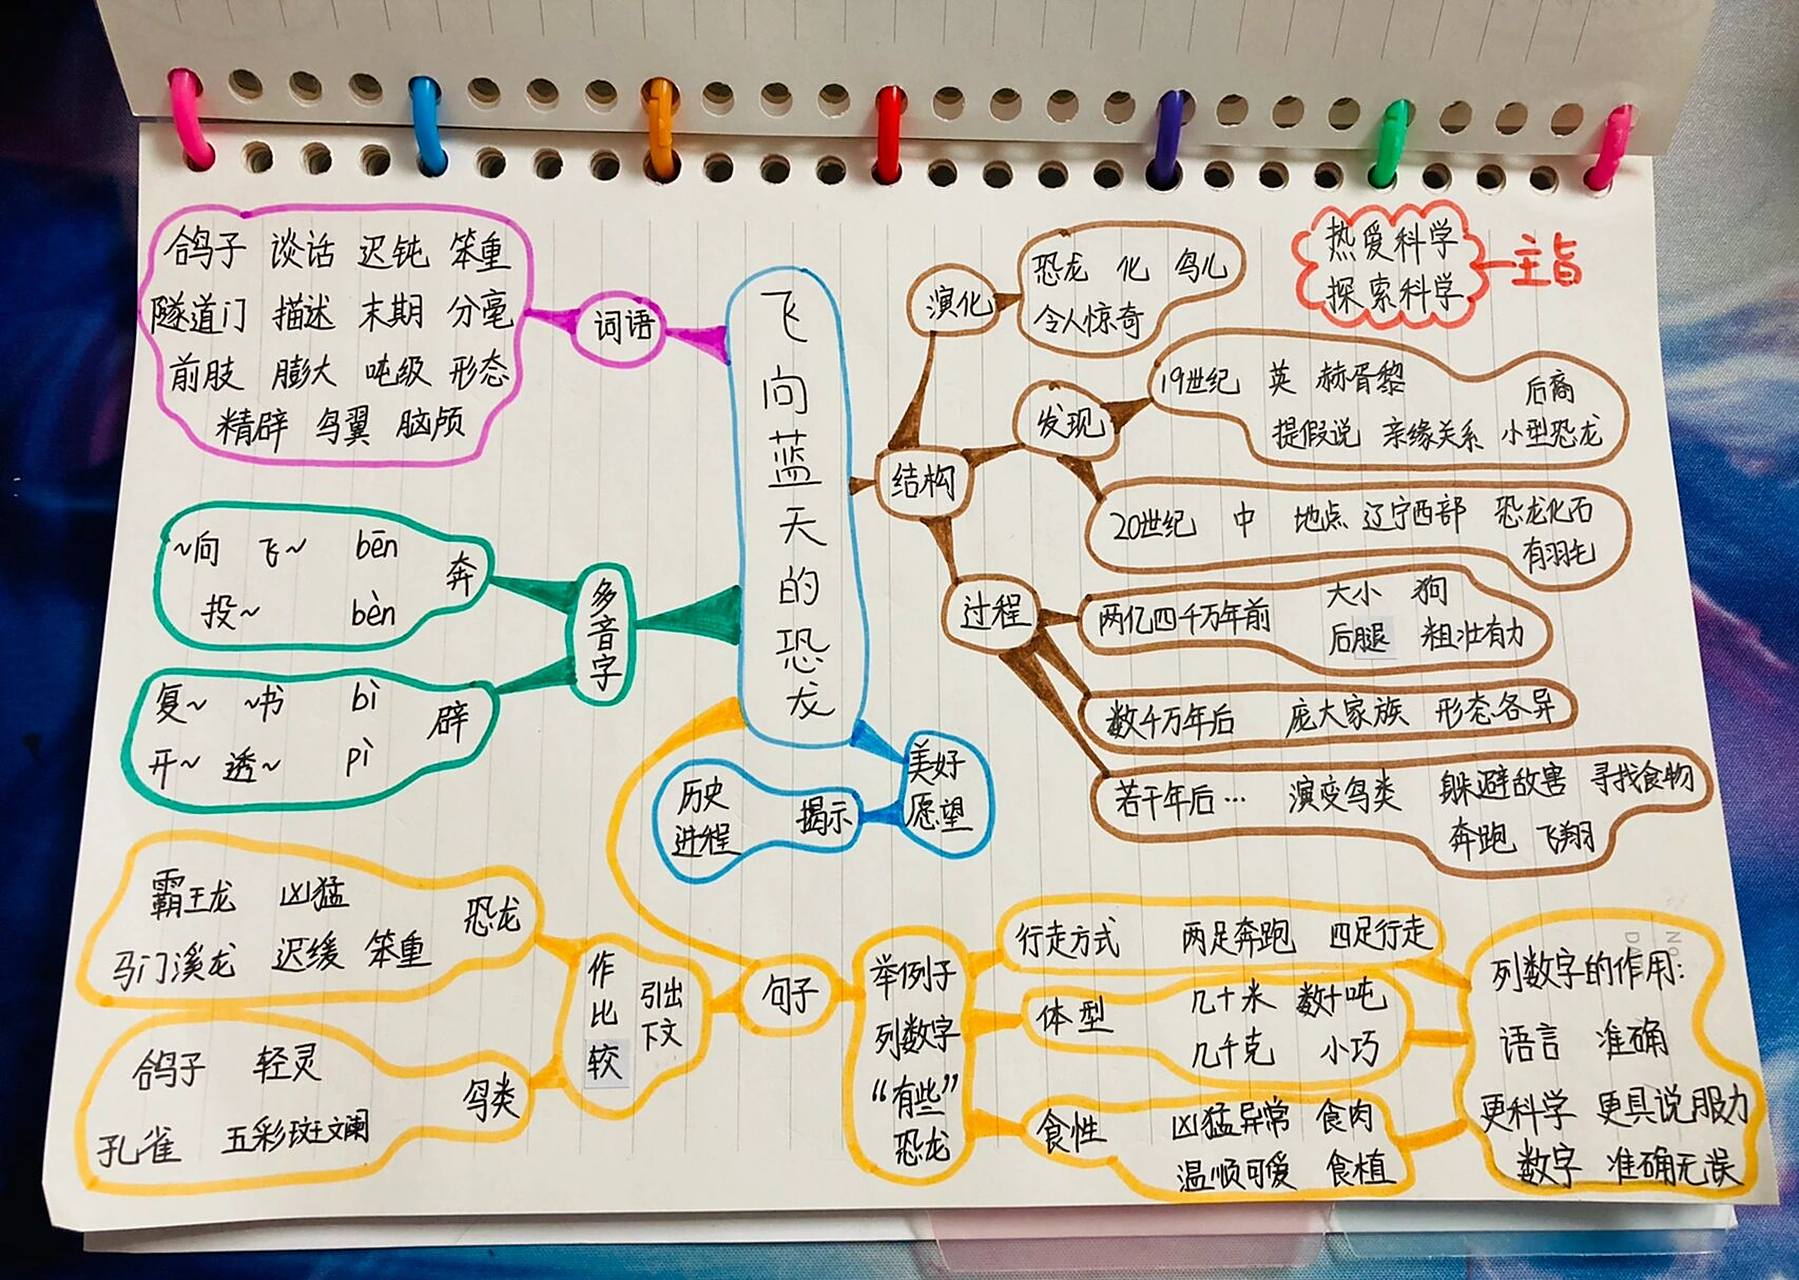 飞向蓝天的恐龙
词语
鸽子 谈话 迟钝 笨重
隧道门 描述 末期 分毫
前肢 膨大 吨级 形态
精辟 鸟翼 脑颅
多音字
奔
~向 飞~ bēn
投~ bèn
辟
复~ ~书 bì
开~ 透~ pì
结构
演化
恐龙 化 鸟儿
令人惊奇
发现
19世纪 英 赫胥黎 后裔
提假说 亲缘关系 小型恐龙
20世纪 中 地点 辽宁西部 恐龙化石
有羽毛
过程
两亿四千万年前 大小 狗
后腿 粗壮有力
数千万年后 庞大家族 形态各异
若干年后… 演变鸟类 躲避敌害 寻找食物
奔跑 飞翔
热爱科学
探索科学
主旨
美好
愿望
揭示
历史
进程
句子
作比较
引出
下文
恐龙
霸王龙 凶猛
马门溪龙 迟缓 笨重
鸟类
鸽子 轻灵
孔雀 五彩斑斓
举例子
列数字
“有些”
恐龙
行走方式 两足奔跑 四足行走
体型
几十米 数十吨
几千克 小巧
食性
凶猛异常 食肉
温顺可爱 食植
列数字的作用:
语言 准确
更科学 更具说服力
数字 准确无误